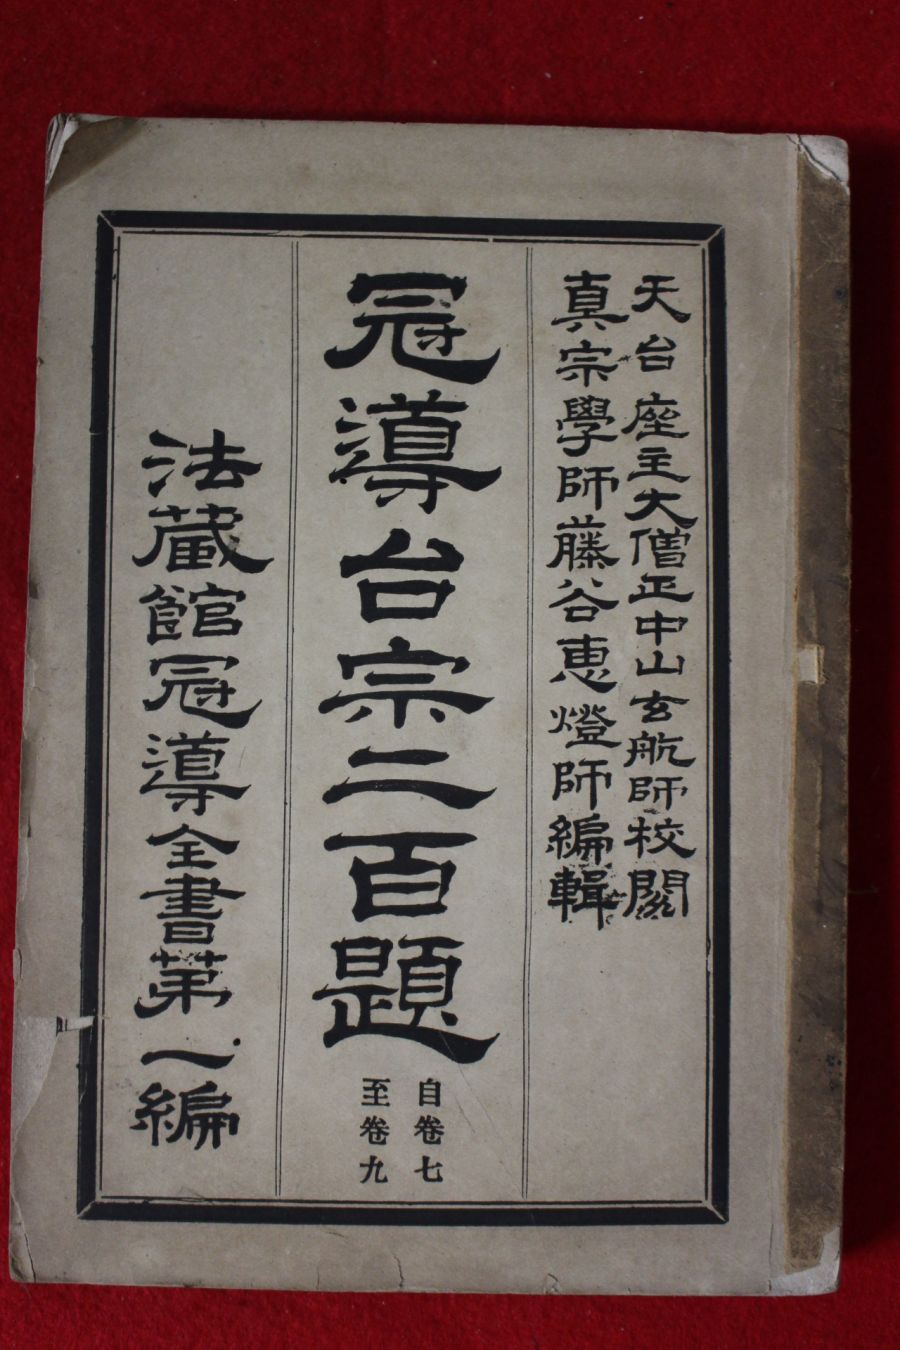 天台座主大僧正中山玄航師校閲
真宗學師藤谷恵燈師編輯
冠導台宗二百題
自卷七
至卷九
法蔵館冠導全書第一編